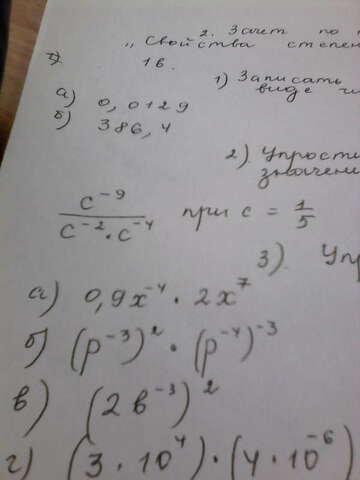 2. Зачет по
"Свойства степен
1в.
1) Записать
виде
а) 0,0129
б) 386,4
2) Упрости
значени
c⁻⁹ / c⁻² · c⁻⁴ при c = 1/5
3). Упр
а) 0,9x⁻⁴ · 2x⁷
б) (p⁻³)² · (p⁻⁴)⁻³
в) (2b⁻³)²
г) (3 · 10⁴) · (4 · 10⁻⁶)